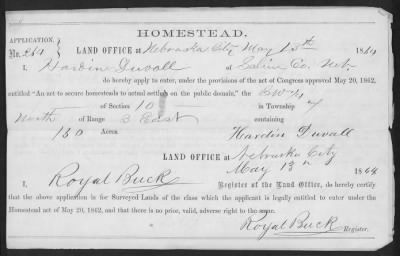 HOMESTEAD.
APPLICATION.
No. 264
LAND OFFICE at Nebraska City May 13th 1864
I, Hardin Duvall of Saline Co. Neb.
do hereby apply to enter, under the provisions of the act of Congress approved May 20, 1862,
entitled "An act to secure homesteads to actual settlers on the public domain," the SW 1/4
of Section 10 in Township 7
North of Range 3 East containing
160 Acres
Hardin Duvall
LAND OFFICE at Nebraska City
May 13th 1864
I, Royal Buck Register of the Land Office, do hereby certify
that the above application is for Surveyed Lands of the class which the applicant is legally entitled to enter under the
Homestead act of May 20, 1862, and that there is no prior, valid, adverse right to the same.
Royal Buck
Register.